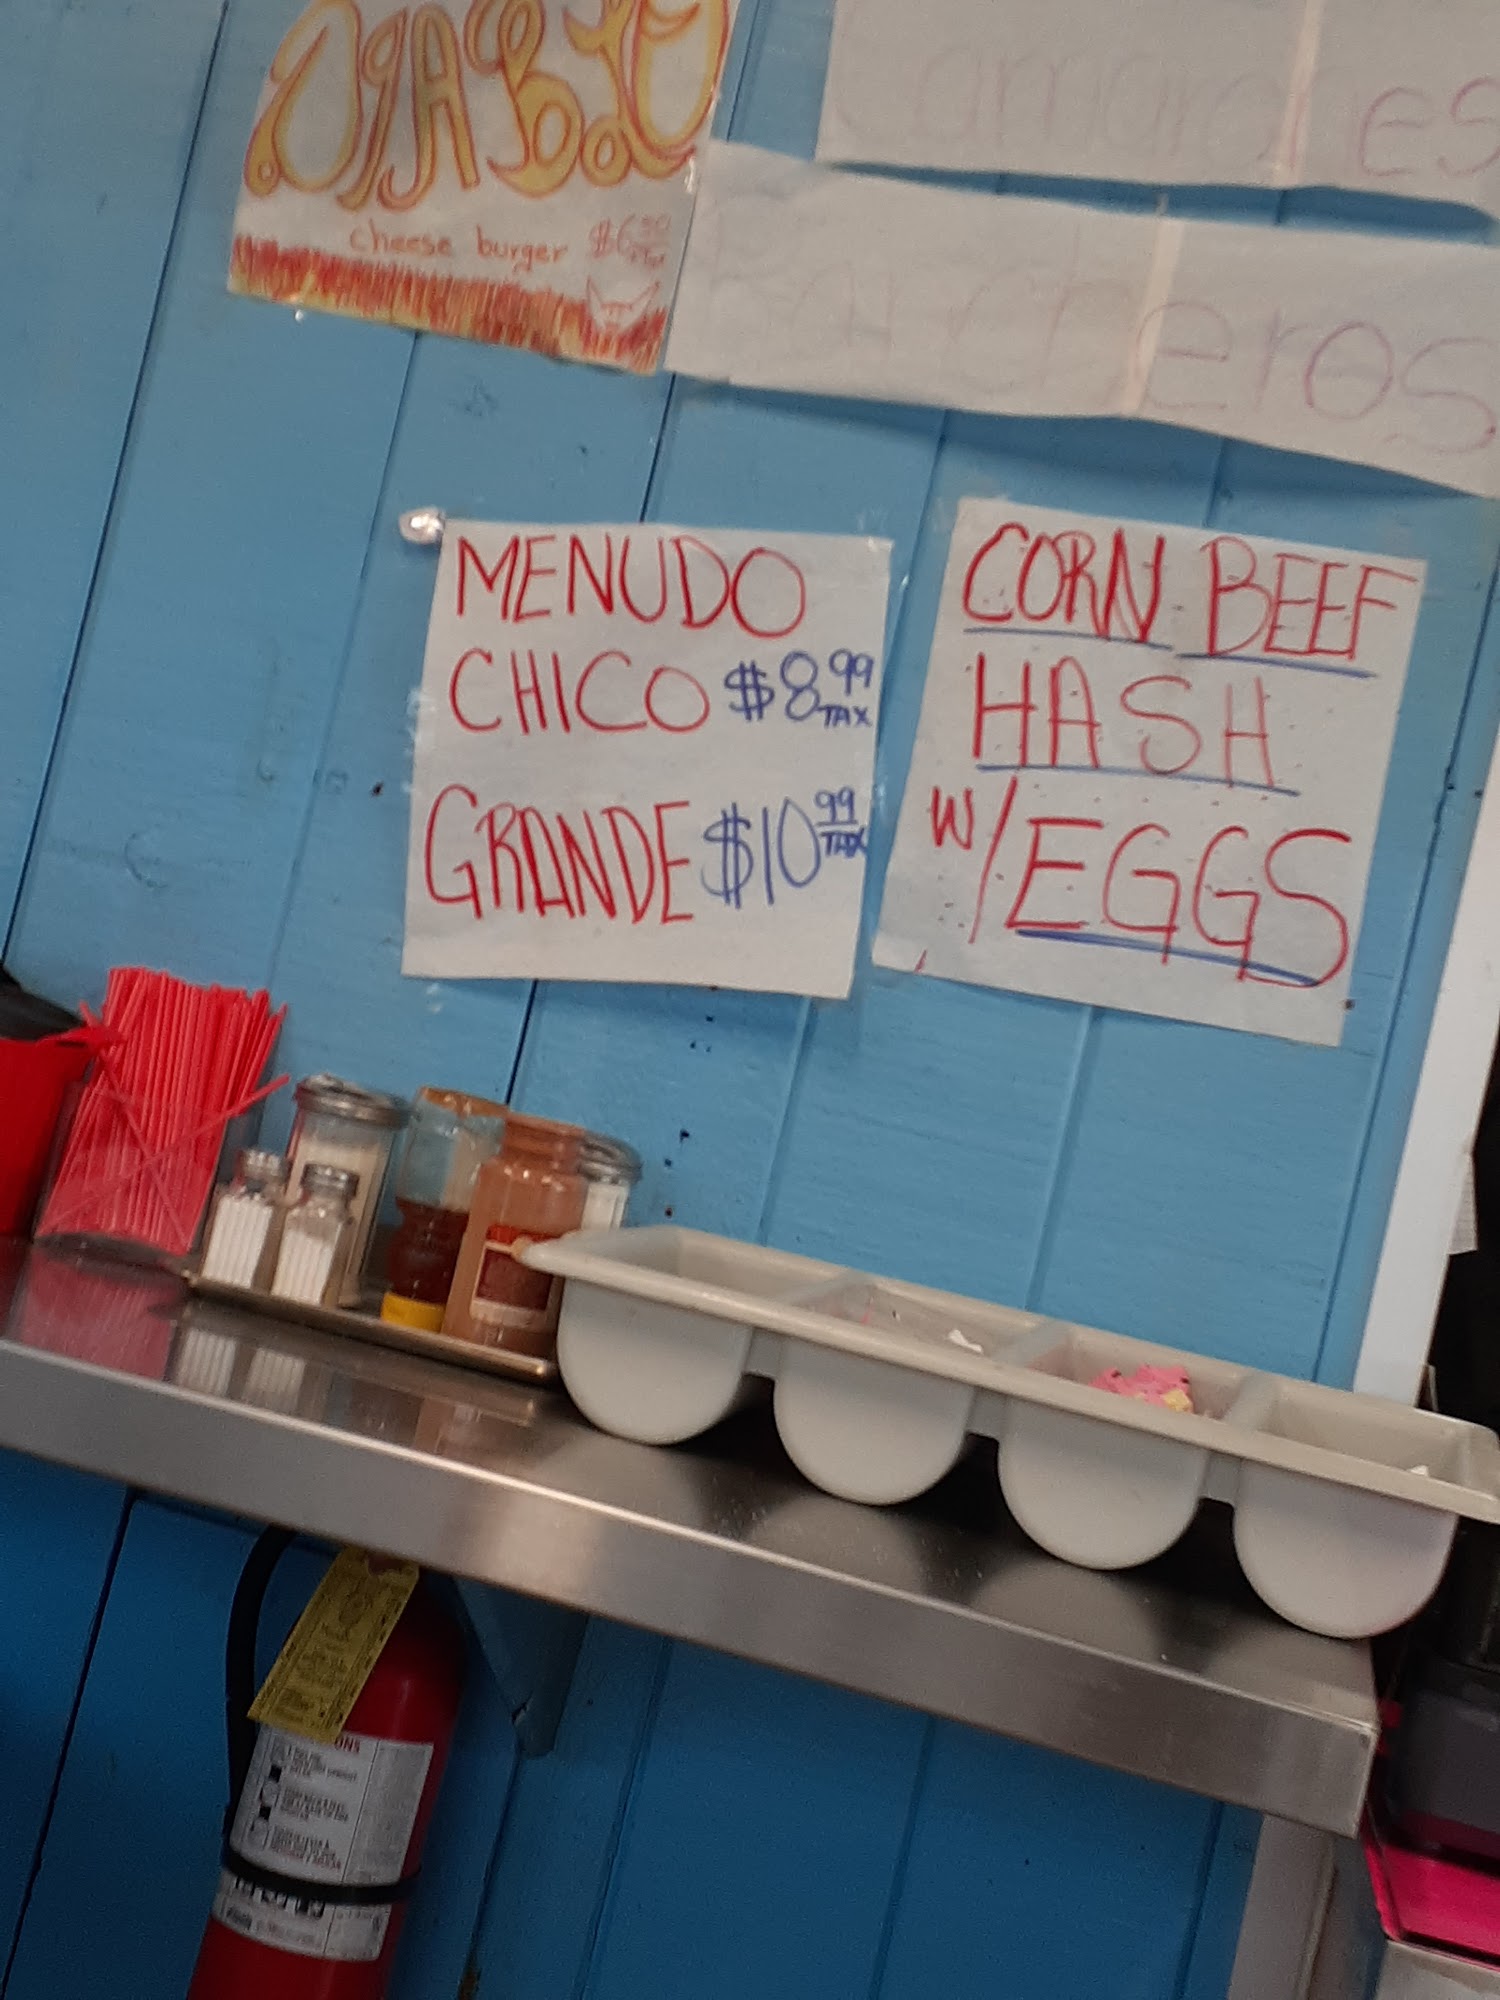 DIABLO
cheese burger $6.50
+Tax
Camarones
Rancheros
MENUDO
CHICO $8.99
TAX
GRANDE $10.99
TAX
CORN BEEF
HASH
W/EGGS